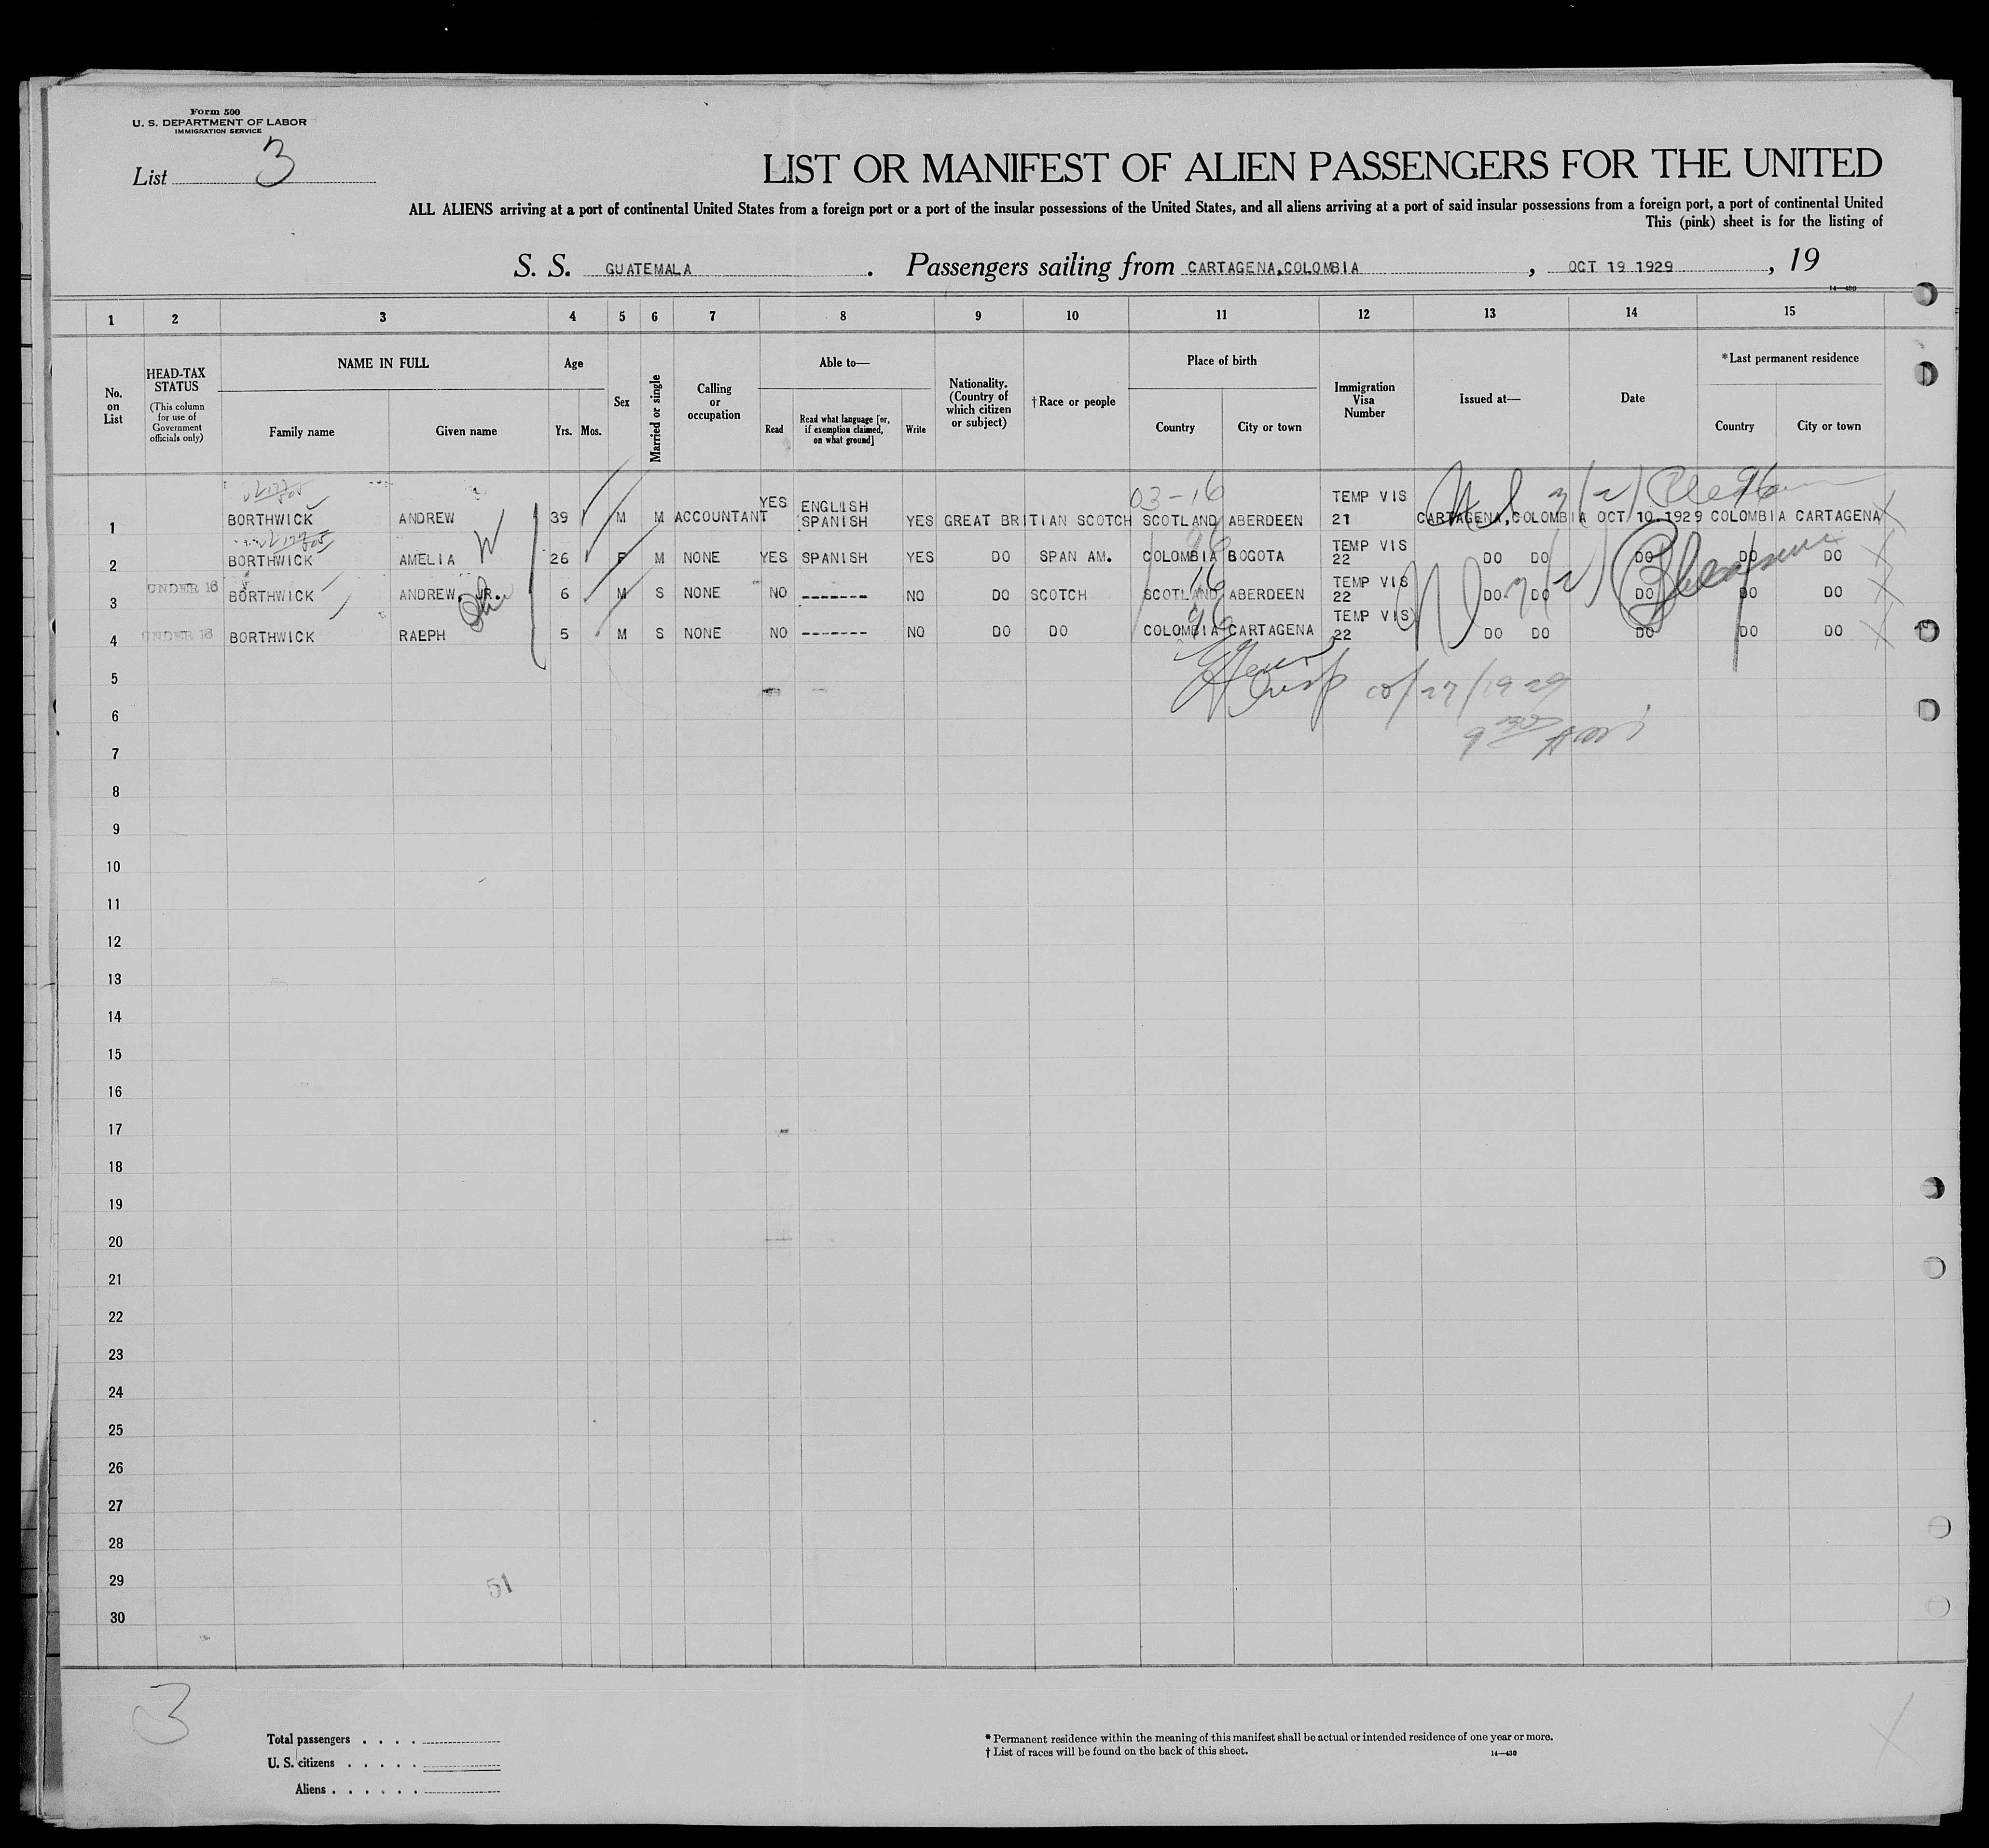 Form 500
U. S. DEPARTMENT OF LABOR
IMMIGRATION SERVICE
List 3
LIST OR MANIFEST OF ALIEN PASSENGERS FOR THE UNITED
ALL ALIENS arriving at a port of continental United States from a foreign port or a port of the insular possessions of the United States, and all aliens arriving at a port of said insular possessions from a foreign port, a port of continental United
This (pink) sheet is for the listing of
S. S. GUATEMALA . Passengers sailing from CARTAGENA,COLOMBIA , OCT 19 1929 , 19
14—430
1 2 3 4 5 6 7 8 9 10 11 12 13 14 15
No. on List
HEAD-TAX STATUS
(This column for use of Government officials only)
NAME IN FULL
Family name Given name
Age
Yrs. Mos.
Sex
Married or single
Calling or occupation
Able to—
Read
Read what language [or, if exemption claimed, on what ground]
Write
Nationality. (Country of which citizen or subject)
† Race or people
Place of birth
Country City or town
Immigration Visa Number
Issued at—
Date
*Last permanent residence
Country City or town
03-16
96
1 BORTHWICK ANDREW 39 M M ACCOUNTANT YES ENGLISH SPANISH YES GREAT BRITIAN SCOTCH SCOTLAND ABERDEEN TEMP VIS 21 CARTAGENA,COLOMBIA OCT 10.1929 COLOMBIA CARTAGENA
W
2 BORTHWICK AMELIA 26 F M NONE YES SPANISH YES DO SPAN AM. COLOMBIA BOGOTA TEMP VIS 22 DO DO DO DO DO
16
3 UNDER 16 BORTHWICK ANDREW.JR. 6 M S NONE NO ------- NO DO SCOTCH SCOTLAND ABERDEEN TEMP VIS 22 DO DO DO DO DO
96
4 UNDER 16 BORTHWICK RALPH 5 M S NONE NO ------- NO DO DO COLOMBIA CARTAGENA TEMP VIS 22 DO DO DO DO DO
10/27/1929
5
6
7
8
9
10
11
12
13
14
15
16
17
18
19
20
21
22
23
24
25
26
27
28
29
51
30
3
Total passengers . . . .
U. S. citizens . . . . .
Aliens . . . . . .
* Permanent residence within the meaning of this manifest shall be actual or intended residence of one year or more.
† List of races will be found on the back of this sheet.
14—430